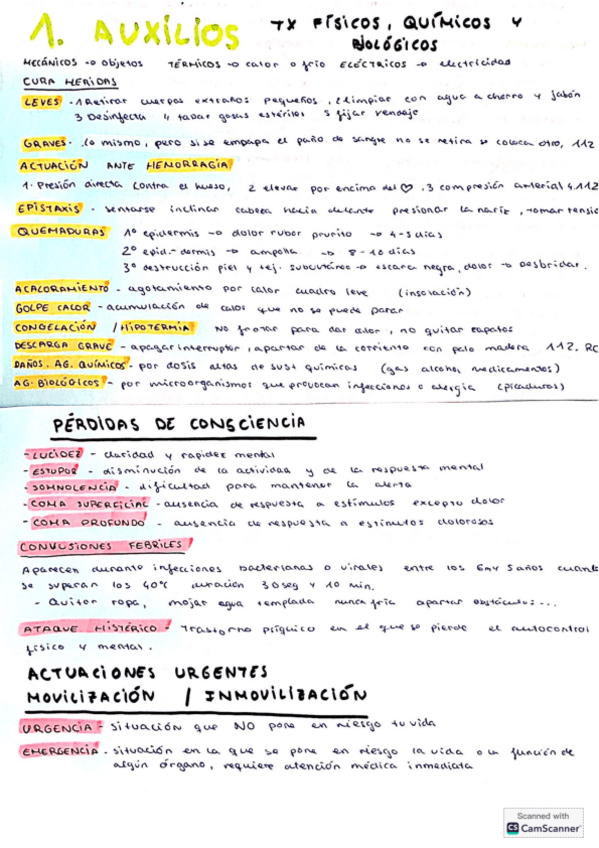 1. AUXILIOS TX FÍSICOS, QUÍMICOS Y
BIOLÓGICOS
MECÁNICOS → objetos TÉRMICOS → calor o frío ELÉCTRICOS → electricidad
CURA HERIDAS
LEVES - 1 Retirar cuerpos extraños pequeños, 2 limpiar con agua a chorro y jabón
3 Desinfecta 4 tapar gasas estériles 5 fijar vendaje
GRAVES - lo mismo, pero si se empapa el paño de sangre no se retira se coloca otro, 112
ACTUACIÓN ANTE HEMORRAGIA
1. Presión directa contra el hueso, 2 elevar por encima del ♡. 3 compresión arterial 4. 112
EPISTAXIS - sentarse inclinar cabeza hacia delante presionar la nariz, tomar tensió
QUEMADURAS 1º epidermis → dolor rubor prurito → 4-5 días
2º epid.- dermis → ampolla → 8-10 días
3º destrucción piel y tej. subcutáneo → escara negra, dolor → Desbridar.
ACALORAMIENTO - agotamiento por calor cuadro leve (insolación)
GOLPE CALOR - acumulación de calor que no se puede parar
CONGELACIÓN / HIPOTERMIA NO frotar para dar calor, no quitar zapatos
DESCARGA GRAVE - apagar interruptor, apartar de la corriente con palo madera 112. RC
DAÑOS. AG. QUÍMICOS - por dosis altas de sust químicas (gas alcohol medicamentos)
AG. BIOLÓGICOS - por microorganismos que provocan infecciones o alergia (picaduras)
PÉRDIDAS DE CONSCIENCIA
- LUCIDEZ - claridad y rapidez mental
- ESTUPOR - disminución de la actividad y de la respuesta mental
- SOMNOLENCIA - dificultad para mantener la alerta
- COMA SUPERFICIAL - ausencia de respuesta a estímulos excepto dolor
- COMA PROFUNDO - ausencia de respuesta a estímulos dolorosos
CONVULSIONES FEBRILES
Aparecen durante infecciones bacterianas o virales entre los 6m y 5 años cuando
se superan los 40ºC duración 30 seg y 10 min.
- Quitar ropa, mojar agua templada nunca fría apartar obstáculos...
ATAQUE HISTÉRICO - Trastorno psíquico en el que se pierde el autocontrol
físico y mental.
ACTUACIONES URGENTES
MOVILIZACIÓN / INMOVILIZACIÓN
URGENCIA - situación que NO pone en riesgo tu vida
EMERGENCIA - situación en la que se pone en riesgo la vida o la función de
algún órgano, requiere atención médica inmediata
Scanned with
CS CamScanner